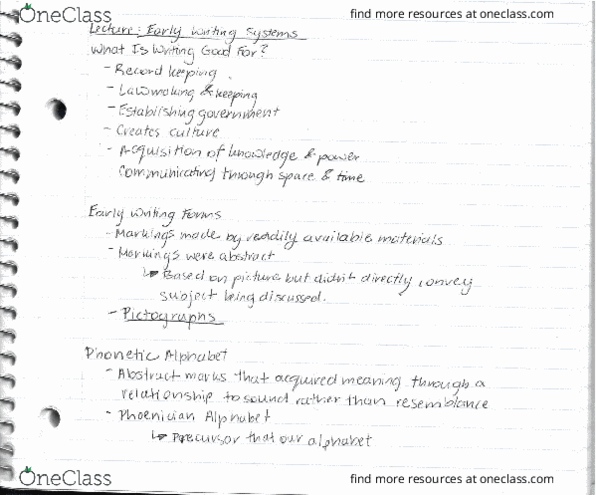 OneClass
find more resources at oneclass.com
Lecture: Early Writing Systems
What Is Writing Good For?
- Record keeping
- Lawmaking & keeping
- Establishing government
- Creates culture
- Acquisition of knowledge & power
Communicating through space & time
Early Writing Forms
- Markings made by readily available materials
- Markings were abstract
↳ Based on picture but didn't directly convey
subject being discussed.
- Pictographs
Phonetic Alphabet
- Abstract marks that acquired meaning through a
relationship to sound rather than resemblance
- Phoenician Alphabet
↳ Precursor that our alphabet
OneClass
find more resources at oneclass.com